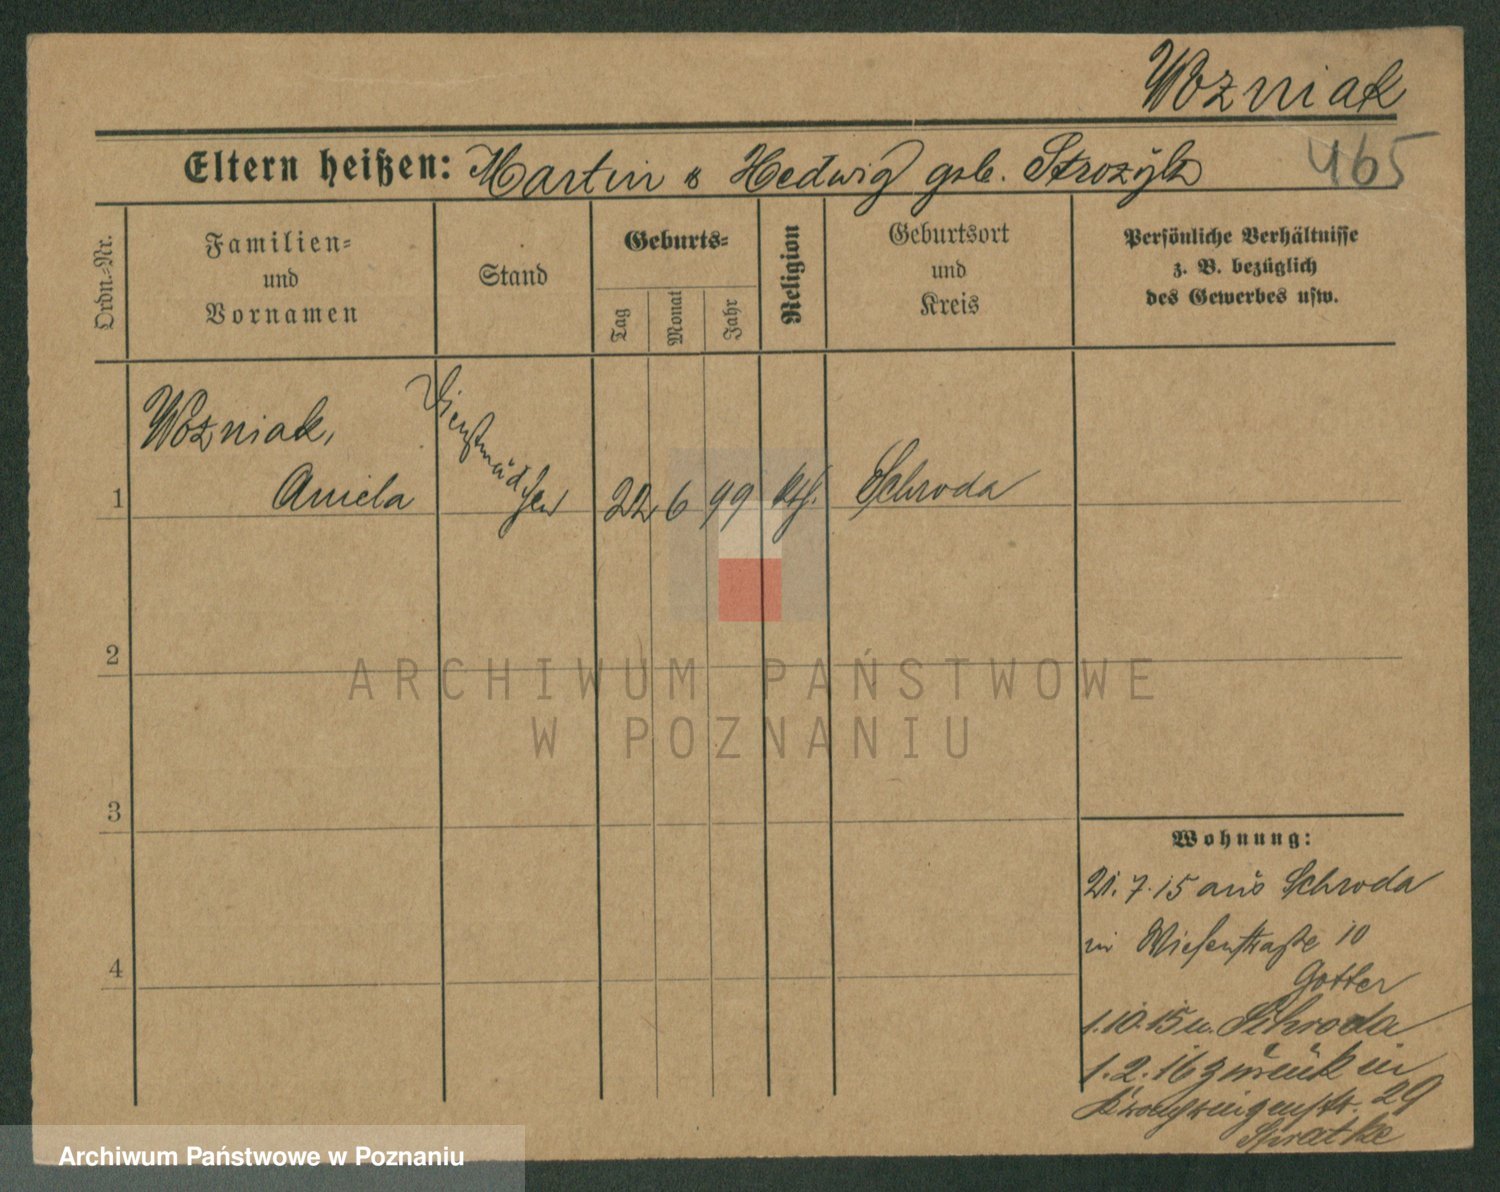 Wozniak
465
Eltern heißen: Martin & Hedwig geb. Strozyk
Ordn.-Nr.
Familien-
und
Vornamen
Stand
Geburts-
Tag
Monat
Jahr
Religion
Geburtsort
und
Kreis
Persönliche Verhältnisse
z. B. bezüglich
des Gewerbes usw.
1
Wozniak,
Aniela
Dienstmädchen
22 6 99 kth. Schroda
2
3
4
Wohnung:
21.7.15 aus Schroda
in Wiesenstraße 10
Gotter
1.10.15 n. Schroda
1.2.16 zurück in
Kronprinzenstr. 29
ARCHIWUM PAŃSTWOWE
W POZNANIU
Archiwum Państwowe w Poznaniu